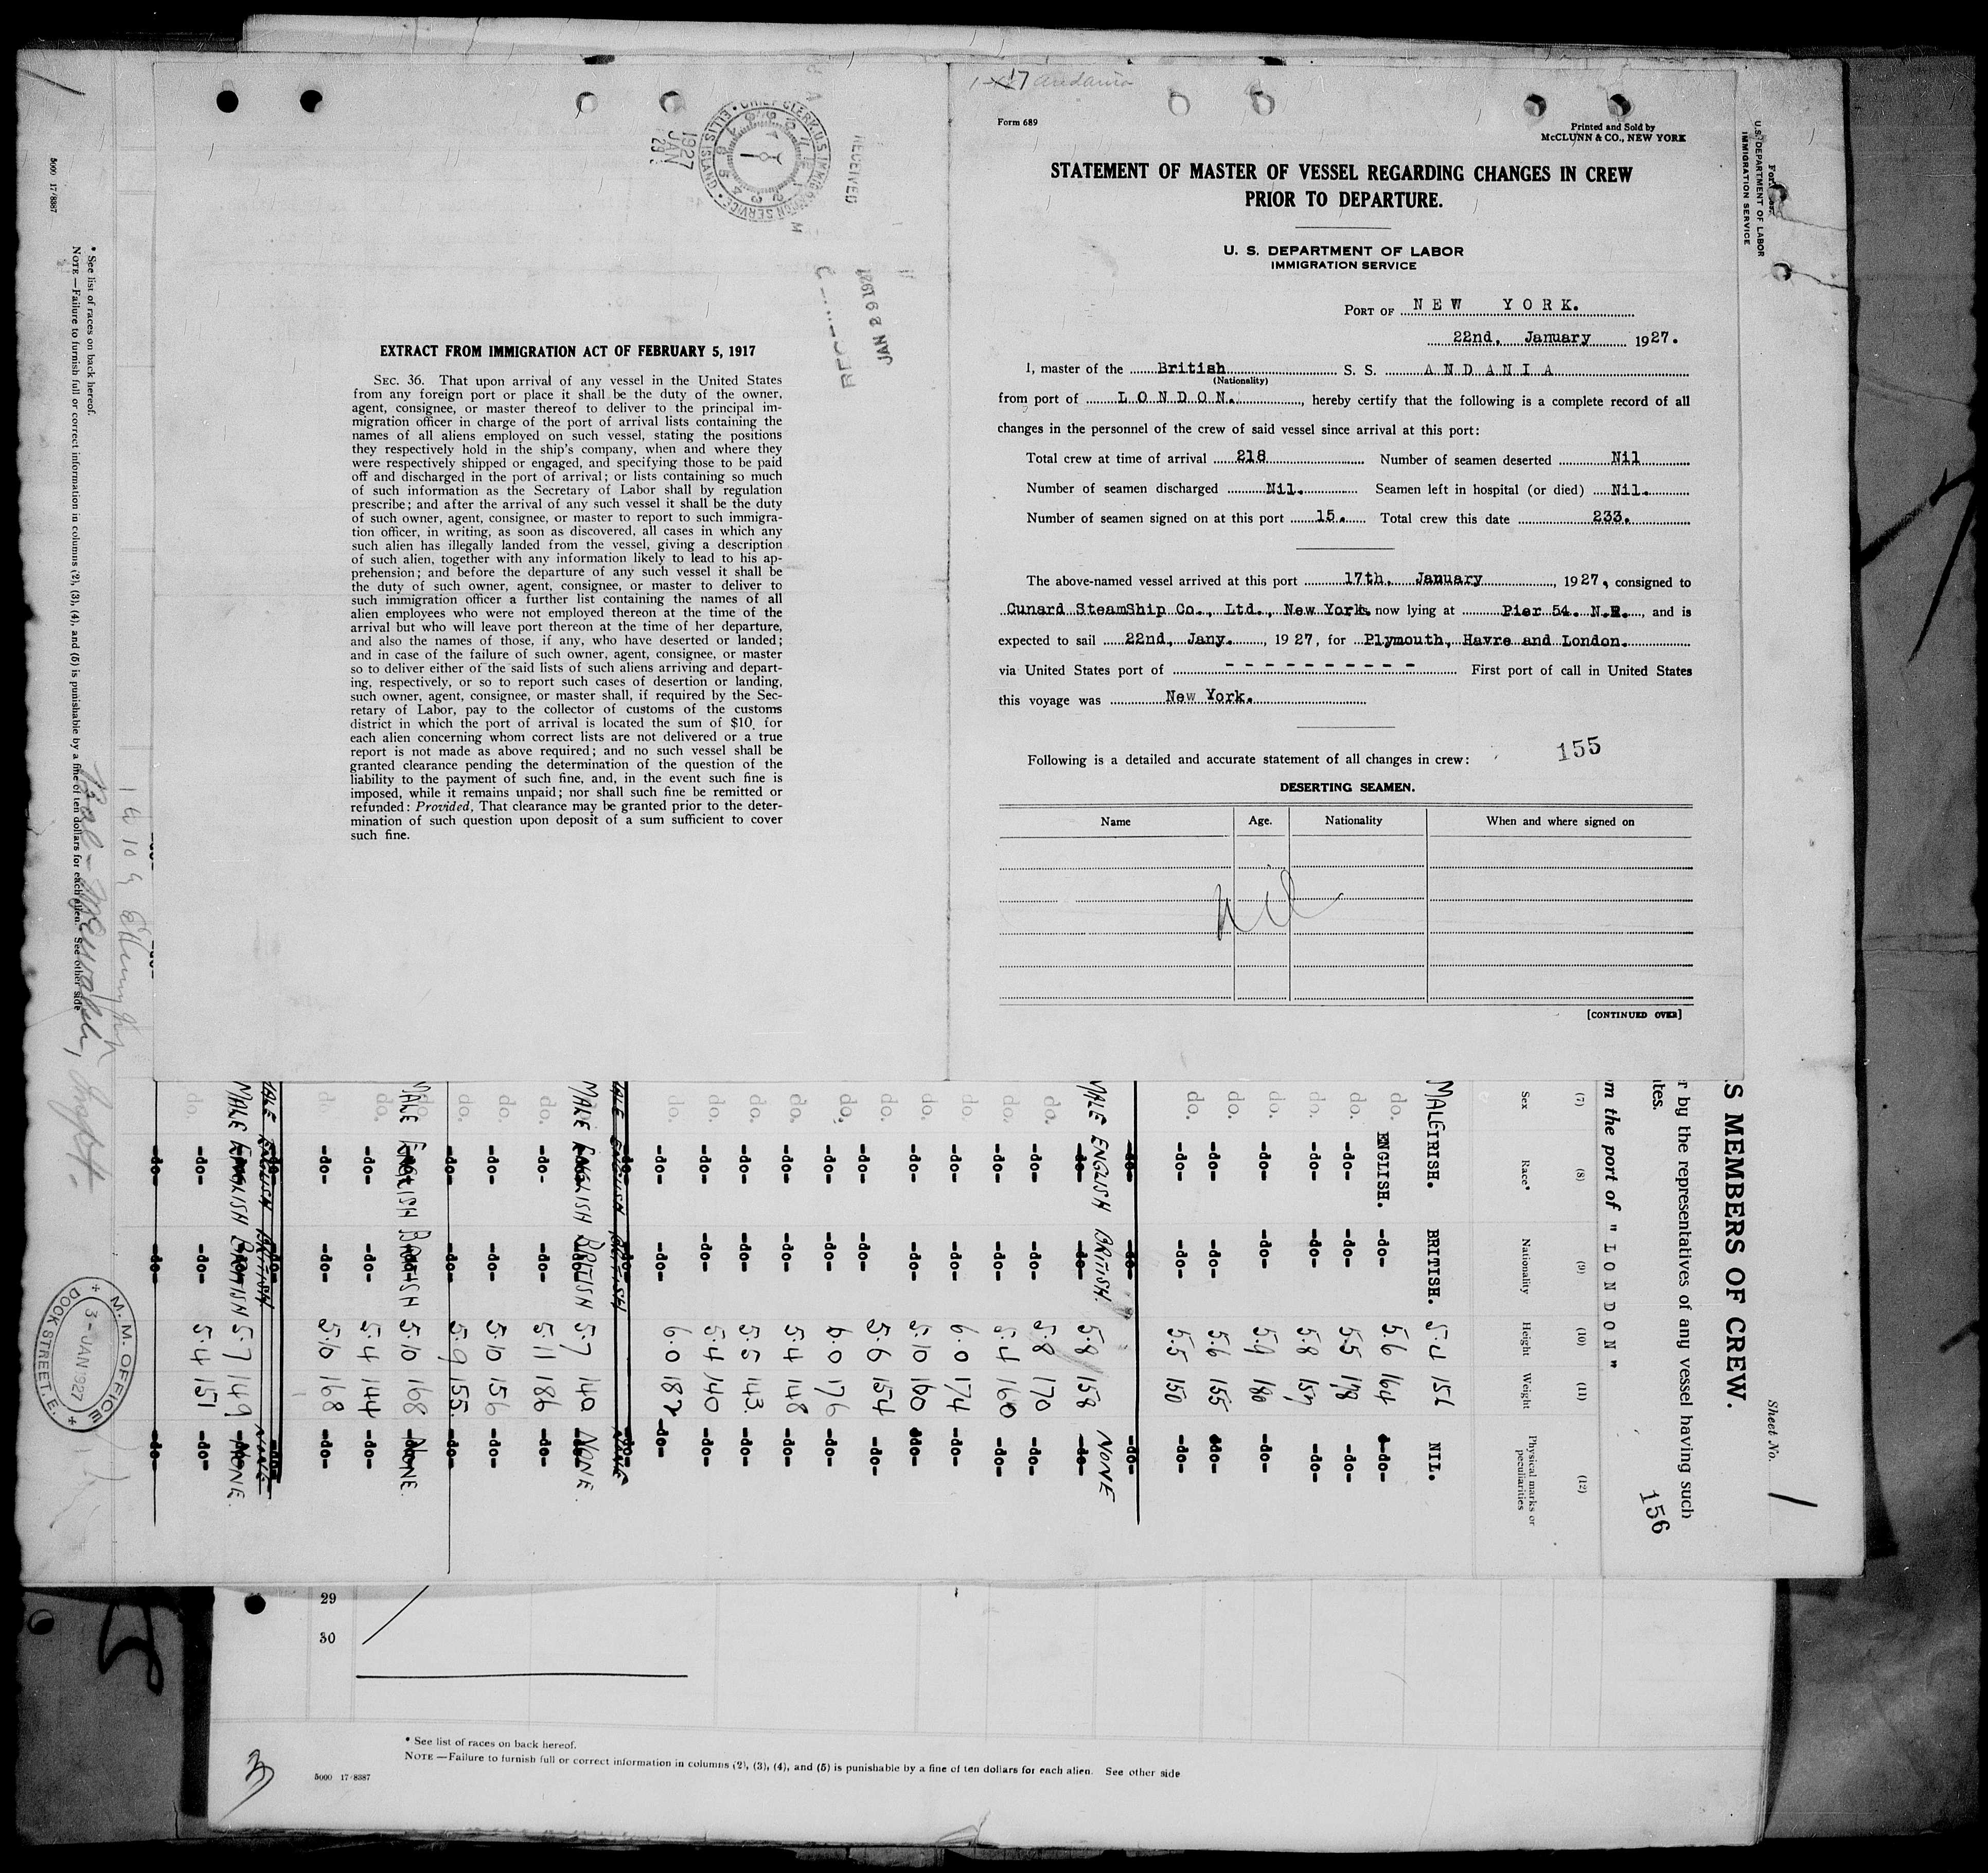 1 17 Andania
Form 689
Printed and Sold by
McCLUNN & CO., NEW YORK
STATEMENT OF MASTER OF VESSEL REGARDING CHANGES IN CREW
PRIOR TO DEPARTURE.
U. S. DEPARTMENT OF LABOR
IMMIGRATION SERVICE
PORT OF NEW YORK.
22nd, January 1927.
I, master of the British S. S. ANDANIA
(Nationality)
from port of LONDON., hereby certify that the following is a complete record of all
changes in the personnel of the crew of said vessel since arrival at this port:
Total crew at time of arrival 218 Number of seamen deserted Nil
Number of seamen discharged Nil. Seamen left in hospital (or died) Nil.
Number of seamen signed on at this port 15. Total crew this date 233.
The above-named vessel arrived at this port 17th, January, 1927, consigned to
Cunard SteamShip Co., Ltd., New York. now lying at Pier 54. N.R., and is
expected to sail 22nd, Jany., 1927, for Plymouth, Havre and London.
via United States port of - - - - - - - - - - First port of call in United States
this voyage was New York.
155
Following is a detailed and accurate statement of all changes in crew:
DESERTING SEAMEN.
Name Age. Nationality When and where signed on
Nil
[CONTINUED OVER]
CHIEF CLERK, U.S. IMMIGRATION SERVICE • ELLIS ISLAND •
1927
JAN
29
RECEIVED
JAN 29 1927
EXTRACT FROM IMMIGRATION ACT OF FEBRUARY 5, 1917
SEC. 36. That upon arrival of any vessel in the United States
from any foreign port or place it shall be the duty of the owner,
agent, consignee, or master thereof to deliver to the principal im-
migration officer in charge of the port of arrival lists containing the
names of all aliens employed on such vessel, stating the positions
they respectively hold in the ship's company, when and where they
were respectively shipped or engaged, and specifying those to be paid
off and discharged in the port of arrival; or lists containing so much
of such information as the Secretary of Labor shall by regulation
prescribe; and after the arrival of any such vessel it shall be the duty
of such owner, agent, consignee, or master to report to such immigra-
tion officer, in writing, as soon as discovered, all cases in which any
such alien has illegally landed from the vessel, giving a description
of such alien, together with any information likely to lead to his ap-
prehension; and before the departure of any such vessel it shall be
the duty of such owner, agent, consignee, or master to deliver to
such immigration officer a further list containing the names of all
alien employees who were not employed thereon at the time of the
arrival but who will leave port thereon at the time of her departure,
and also the names of those, if any, who have deserted or landed;
and in case of the failure of such owner, agent, consignee, or master
so to deliver either of the said lists of such aliens arriving and depart-
ing, respectively, or so to report such cases of desertion or landing,
such owner, agent, consignee, or master shall, if required by the Sec-
retary of Labor, pay to the collector of customs of the customs
district in which the port of arrival is located the sum of $10 for
each alien concerning whom correct lists are not delivered or a true
report is not made as above required; and no such vessel shall be
granted clearance pending the determination of the question of the
liability to the payment of such fine, and, in the event such fine is
imposed, while it remains unpaid; nor shall such fine be remitted or
refunded: Provided, That clearance may be granted prior to the deter-
mination of such question upon deposit of a sum sufficient to cover
such fine.
U.S. DEPARTMENT OF LABOR
IMMIGRATION SERVICE
Sheet No. 1
S MEMBERS OF CREW.
r by the representatives of any vessel having such
ates.
156
m the port of "LONDON"
(7) (8) (9) (10) (11) (12)
Sex Race* Nationality Height Weight Physical marks or peculiarities
MALE IRISH. BRITISH. 5.4 154 NIL.
do. ENGLISH. -do- 5.6 164 -do-
do. -do- -do- 5.5 178 -do-
do. -do- -do- 5.8 157 -do-
do. -do- -do- 5.9 180 -do-
do. -do- -do- 5.6 155 -do-
do. -do- -do- 5.5 150 -do-
-do- -do- -do-
MALE ENGLISH BRITISH. 5.8 158 NONE
do. -do- -do- 5.8 170 -do-
do. -do- -do- 5.4 160 -do-
do. -do- -do- 6.0 174 -do-
do. -do- -do- 5.10 160 -do-
do. -do- -do- 5.6 154 -do-
do. -do- -do- 6.0 176 -do-
do. -do- -do- 5.4 148 -do-
do. -do- -do- 5.5 143 -do-
do. -do- -do- 5.4 140 -do-
do. -do- -do- 6.0 182 -do-
MALE ENGLISH BRITISH NONE
MALE ENGLISH BRITISH 5.7 140 NONE.
do. -do- -do- 5.11 186 -do-
do. -do- -do- 5.10 156 -do-
do. -do- -do- 5.9 155 -do-
MALE ENGLISH BRITISH 5.10 168 NONE.
do. -do- -do- 5.4 144 -do-
do. -do- -do- 5.10 168 -do-
MALE ENGLISH BRITISH NONE
MALE ENGLISH BRITISH 5.7 149 NONE.
do. -do- -do- 5.4 151 -do-
-do- -do- -do- -do-
* See list of races on back hereof.
NOTE —Failure to furnish full or correct information in columns (2), (3), (4), and (5) is punishable by a fine of ten dollars for each alien. See other side
5000 17/8387
M. M. OFFICE
3- JAN 1927
DOCK STREET. E.
29
30
* See list of races on back hereof.
NOTE —Failure to furnish full or correct information in columns (2), (3), (4), and (5) is punishable by a fine of ten dollars for each alien. See other side
5000 17-8387
3